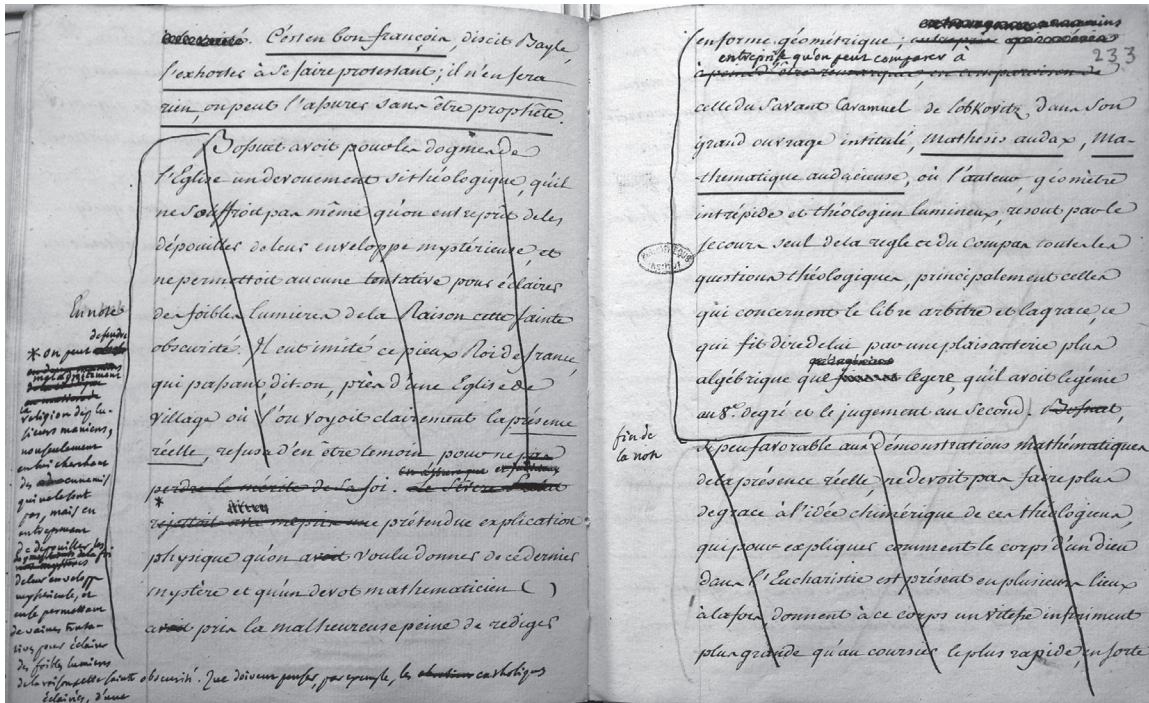 C'est en bon françois, disoit Bayle,
l'exhorter à se faire protestant; il n'en fera
rien, on peut l'assurer sans être prophête.
Bossuet avoit pour les dogmes de
l'Eglise un devouement si théologique, qu'il
ne souffroit pas même qu'on entreprît de les
dépouiller de leur enveloppe mystérieuse, et
ne permettoit aucune tentative pour éclairer
des foibles lumieres de la Raison cette sainte
obscurité. Il eut imité ce pieux Roi de france,
qui passant, dit-on, près d'une Eglise de
village où l'on voyoit clairement la présence
réelle, refusa d'en être temoin pour ne pas
perdre le mérite de la foi.
rejettoit avec mépris une prétendue explication
physique qu'on avoit voulu donner de ce dernier
mystère et qu'un devot mathematicien ( )
avoit pris la malheureuse peine de rediger
En note
* On peut
defendre
mal adroitement
la
religion dis lu-
nonseulement
en lui cherchant
des ennemis
qui ne le sont
pas, mais en
entreprenant
de depouiller les
de leur enveloppe
mysterieuse, et
en se permettant
de vaines tenta-
tives pour éclairer
des foibles lumieres
de la raison cette sainte obscurité. Que doivent penser, par exemple, les catholiques
éclairés, d'une
233
en forme géométrique;
entreprise qu'on peut comparer à
à peine d'être remarquée en comparaison de
celle du Savant Caramuel de Lobkovitz dans son
grand ouvrage intitulé, Mathesis audax, Ma-
thematique audacieuse, où l'auteur, géomètre
intrépide et théologien lumineux, resout par le
secours seul de la regle et du Compas toutes les
questions théologiques, principalement celles
qui concernent le libre arbitre et la grace, ce
qui fit dire de lui par une plaisanterie plus
algébrique que legere, qu'il avoit le génie
au 8e. degré et le jugement au Second. Bossuet,
fin de
la note
si peu favorable aux démonstrations mathématiques
de la présence réelle, ne devoit pas faire plus
de grace à l'idée chimérique de ces théologiens,
qui pour expliquer comment le corps d'un dieu
dans l'Eucharistie est présent en plusieurs lieux
à la fois donnent à ce corps un vitesse infiniment
plus grande qu'au coursier le plus rapide, en sorte